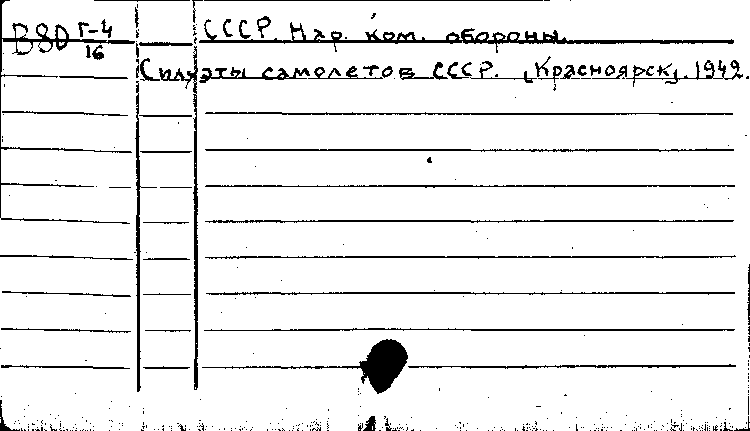 В80 Г-4/16 СССР. Нар. ком. обороны.
Силуэты самолетов СССР. [Красноярск]. 1942.